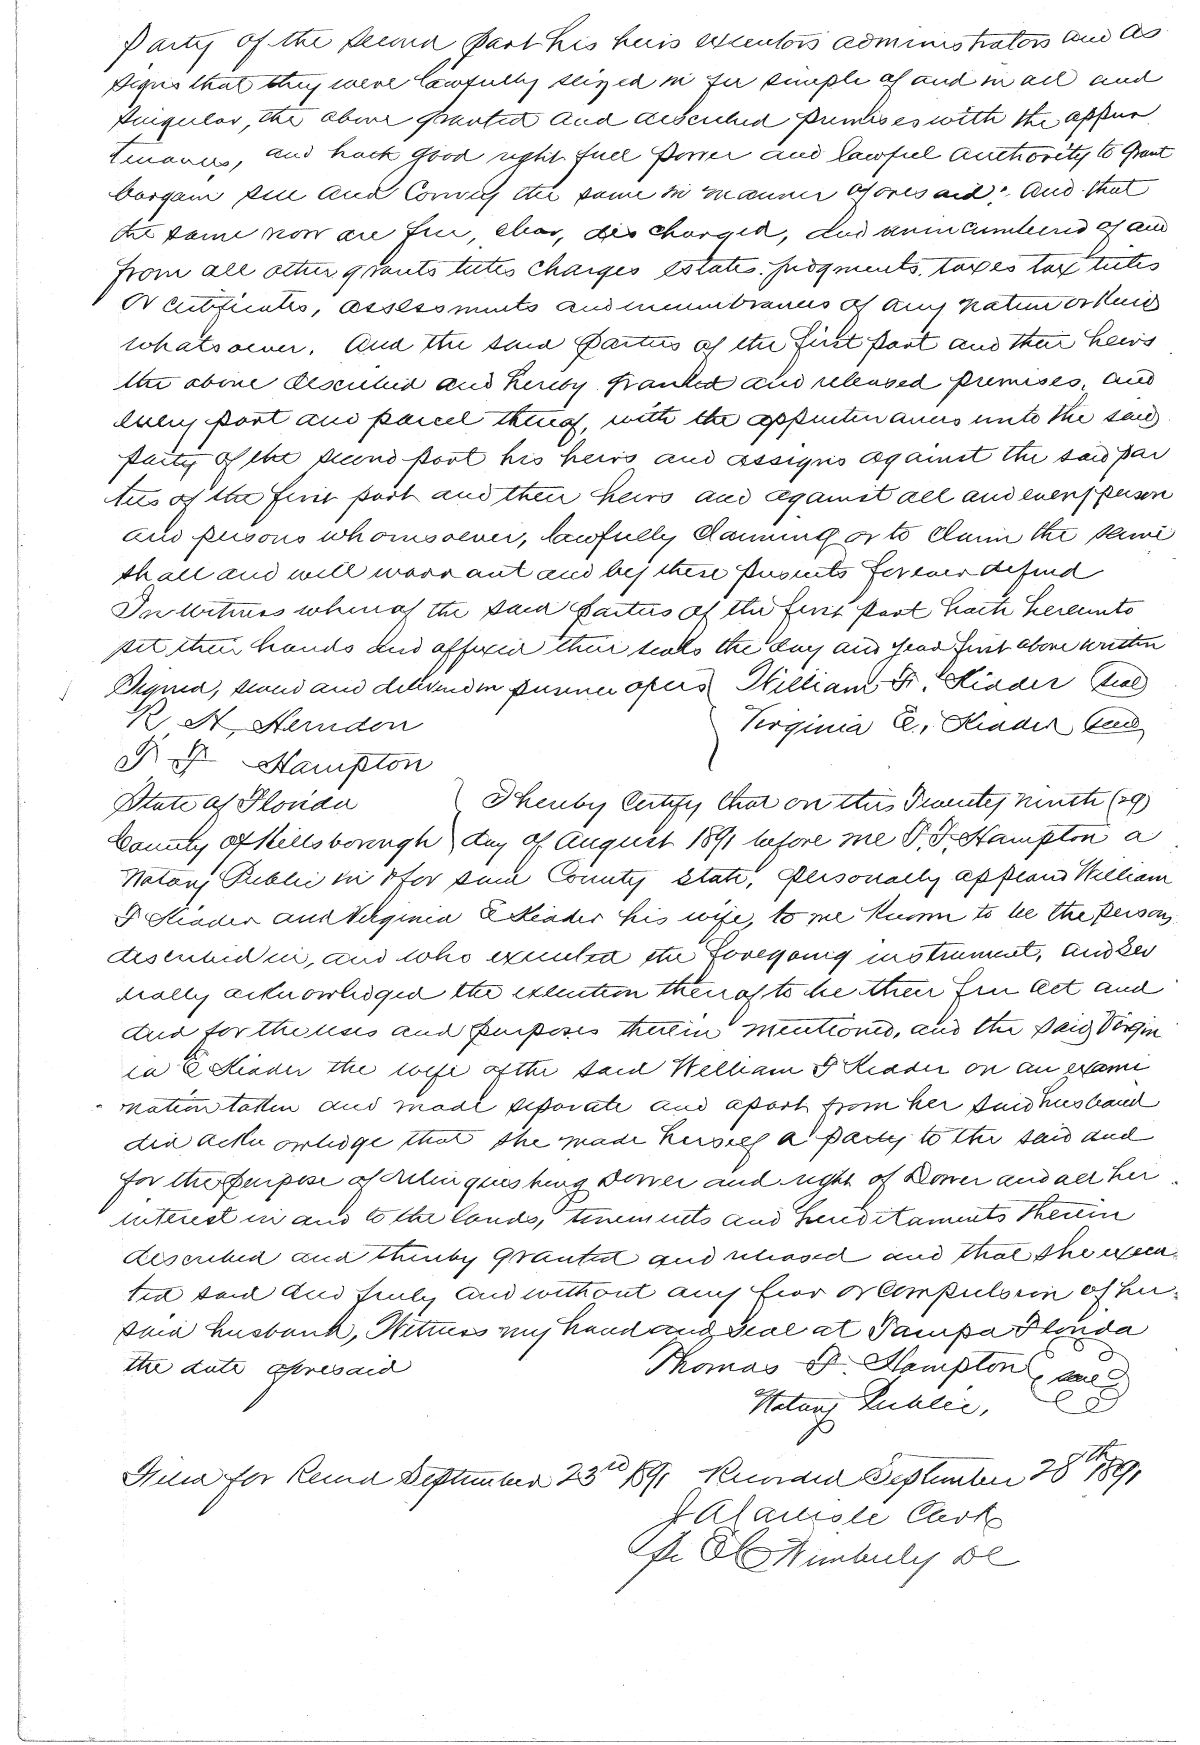 Party of the second part his heirs executors administrators and as
signs that they were lawfully seized in fee simple of and in all and
singular, the above granted and described premises with the appur
tenances, and hath good right full power and lawful authority to grant
bargain sell and convey the same in manner aforesaid. And that
the same now are free, clear, discharged, and unincumbered of and
from all other grants titles charges estates judgments taxes tax titles
or certificates, assessments and incumbrances of any nature or kind
whatsoever. And the said parties of the first part and their heirs
the above described and hereby granted and released premises, and
every part and parcel thereof, with the appurtenances unto the said
party of the second part his heirs and assigns against the said par
ties of the first part and their heirs and against all and every person
and persons whomsoever, lawfully claiming or to claim the same
shall and will warrant and by these presents forever defend
In witness whereof the said parties of the first part hath hereunto
set their hands and affixed their seals the day and year first above written
Signed, sealed and delivered in presence of us } William F. Kidder (seal)
R. A. Herndon Virginia E. Kidder (seal)
T F Hampton
State of Florida } I hereby certify that on this Twenty ninth (29)
County of Hillsborough } day of August 1891 before me T. F. Hampton a
Notary Public in & for said County State, personally appeard William
F Kidder and Virginia E Kidder his wife, to me known to be the persons
described in, and who executed the foregoing instrument, and sev
erally acknowledged the execution thereof to be their free act and
deed for the uses and purposes therein mentioned, and the said Virgin
ia E Kidder the wife of the said William F Kidder on an exami
nation taken and made separate and apart from her said husband
did acknowledge that she made herself a party to the said deed
for the purpose of relinquishing Dower and right of Dower and all her
interest in and to the lands, tenements and hereditaments therein
described and thereby granted and released and that she execu
ted said deed freely and without any fear or compulsion of her
said husband, Witness my hand and seal at Tampa Florida
the date aforesaid Thomas F. Hampton (seal)
Notary Public,
Filed for Record September 23rd 1891 Recorded September 28th 1891
Carlisle Clerk
Wimberly DC